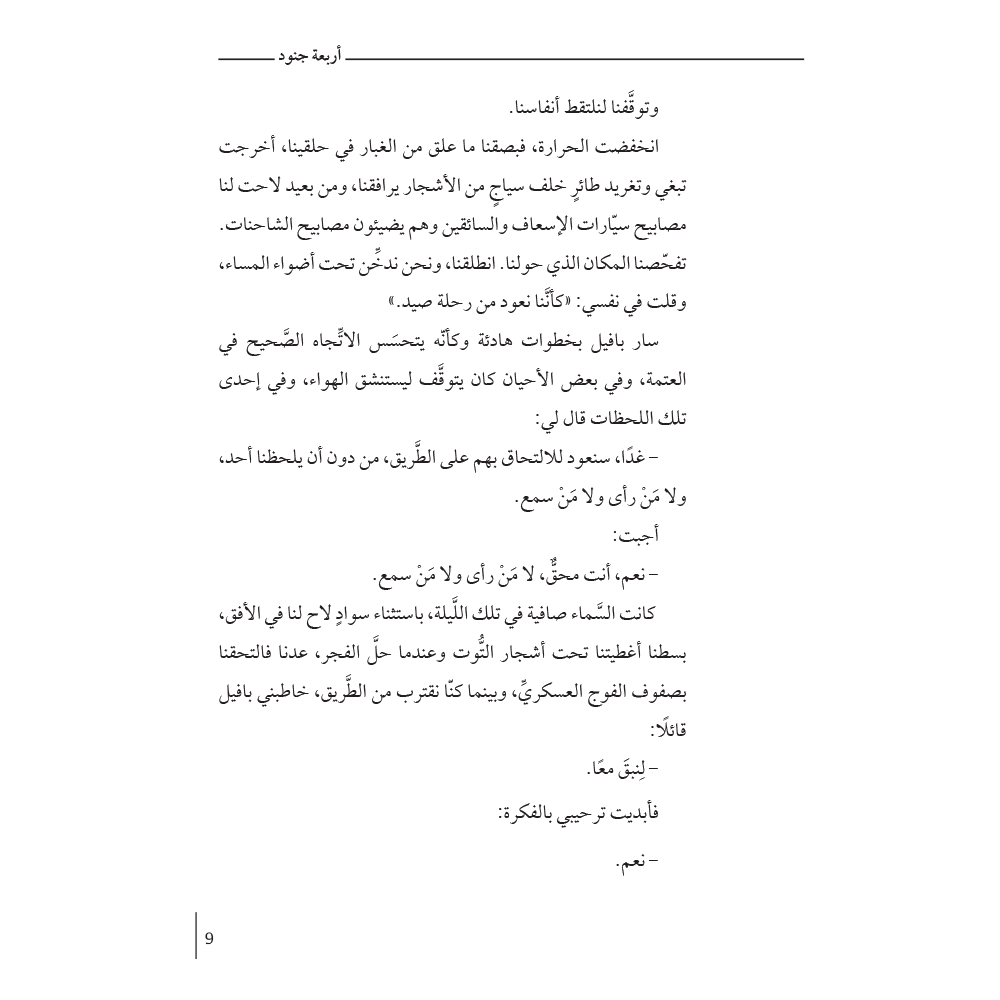 أربعة جنود
وتوقَّفنا لنلتقط أنفاسنا.
انخفضت الحرارة، فبصقنا ما علق من الغبار في حلقينا، أخرجت
تبغي وتغريد طائرٍ خلف سياجٍ من الأشجار يرافقنا، ومن بعيد لاحت لنا
مصابيح سيّارات الإسعاف والسائقين وهم يضيئون مصابيح الشاحنات.
تفحّصنا المكان الذي حولنا. انطلقنا، ونحن ندخِّن تحت أضواء المساء،
وقلت في نفسي: «كأنَّنا نعود من رحلة صيد.»
سار بافيل بخطوات هادئة وكأنّه يتحسَس الاتِّجاه الصَّحيح في
العتمة، وفي بعض الأحيان كان يتوقَّف ليستنشق الهواء، وفي إحدى
تلك اللحظات قال لي:
– غدًا، سنعود للالتحاق بهم على الطَّريق، من دون أن يلحظنا أحد،
ولا مَنْ رأى ولا مَنْ سمع.
أجبت:
– نعم، أنت محقٌّ، لا مَنْ رأى ولا مَنْ سمع.
كانت السَّماء صافية في تلك اللَّيلة، باستثناء سوادٍ لاح لنا في الأفق،
بسطنا أغطيتنا تحت أشجار التُّوت وعندما حلَّ الفجر، عدنا فالتحقنا
بصفوف الفوج العسكريِّ، وبينما كنّا نقترب من الطَّريق، خاطبني بافيل
قائلًا:
– لِنبقَ معًا.
فأبديت ترحيبي بالفكرة:
– نعم.
9